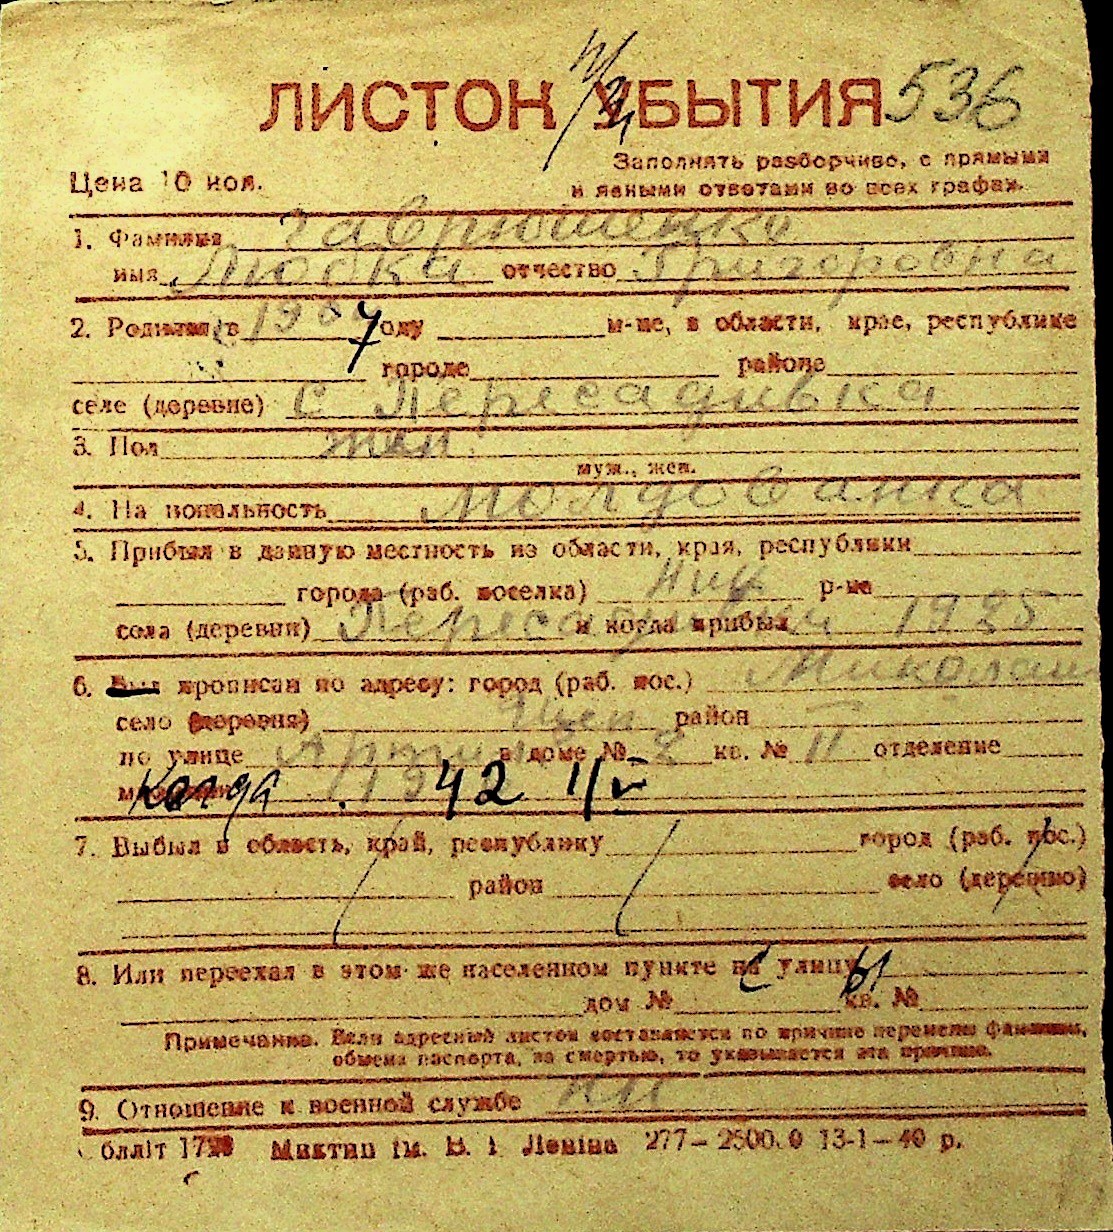 ЛИСТОК УБЫТИЯ 536
Заполнять разборчиво, с прямыми
Цена 10 коп. и явными ответами во всех графах.
1. Фамилия Гаврюшенко
имя Любка отчество Григоровна
2. Родился в 1907 году м-це, в области, крае, республике
городе районе
селе (деревне) с Пересадивка
3. Пол жен
муж., жен.
4. Национальность молдованка
5. Прибыл в данную местность из области, края, республики
города (раб. поселка) Ник р-на
села (деревни) и когда прибыл 1925
6. прописан по адресу: город (раб. пос.)
село (деревня) район
по улице в доме № 2 кв. № 11 отделение
Когда 1942 11/V
7. Выбыл в область, край, республику город (раб. пос.)
район село (деревню)
8. Или переехал в этом же населенном пункте на улицу
дом № кв. №
Примечание. Если адресный листок составляется по причине перемены фамилии,
обмена паспорта, за смертью, то указывается эта причина.
9. Отношение к военной службе н/п
Міктип ім. В. І. Леніна 277—2500.0 13-1—40 р.